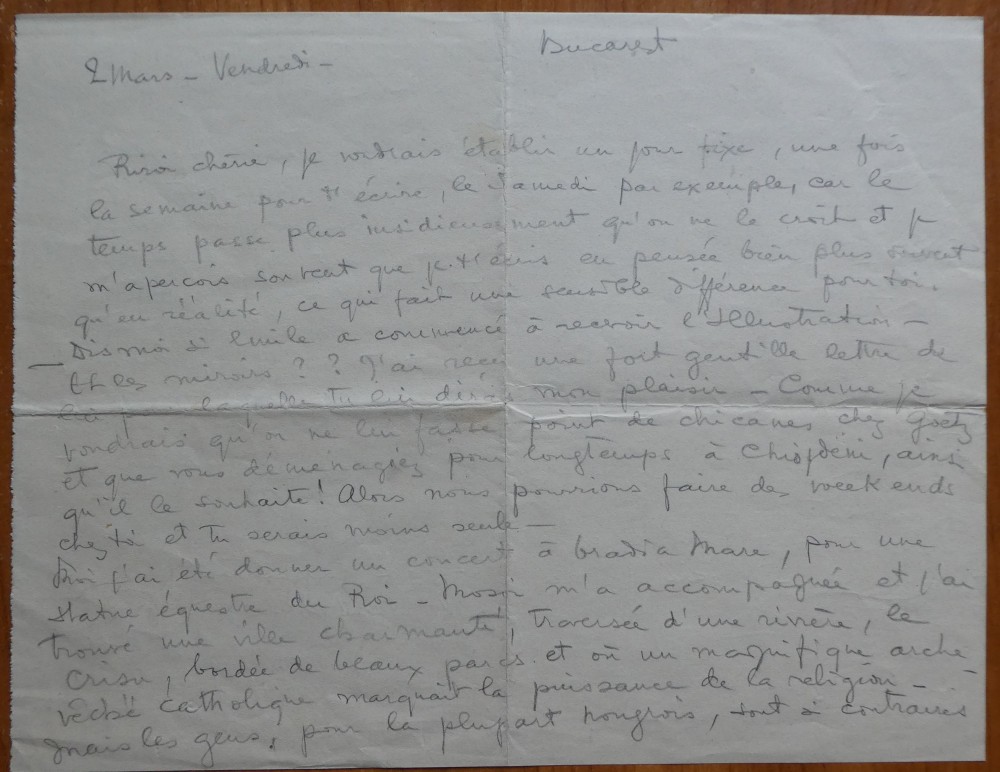 2 Mars - Vendredi -
Bucarest
chérie, je voudrais établir un jour fixe, une fois
la semaine pour t'écrire, le Samedi par exemple, car le
temps passe plus insidieusement qu'on ne le croit et je
m'aperçois souvent que je t'écris en pensée bien plus souvent
qu'en réalité, ce qui fait une sensible différence pour toi.
Dis moi si Emile a commencé à recevoir l'Illustration -
Et les miroirs ? ? J'ai reçu une fort gentille lettre de
lui pour laquelle tu lui diras mon plaisir - Comme je
voudrais qu'on ne lui fasse point de chicanes chez Goetz
et que vous déménagiez pour longtemps à ainsi
qu'il le souhaite ! Alors nous pourrions faire des week ends
chez toi et tu serais moins seule -
Moi j'ai été donner un concert à Oradia Mare, pour une
statue équestre du Roi - m'a accompagnée et j'ai
trouvé une ville charmante, traversée d'une rivière, le
Crisu, bordée de beaux parcs et où un magnifique arche-
vêché catholique marquait la puissance de la religion -
Mais les gens, pour la plupart hongrois, sont si contraires